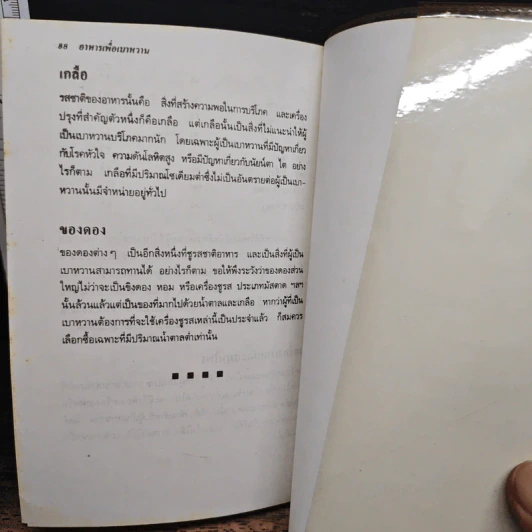 88 อาหารเพื่อเบาหวาน
เกลือ
รสชาติของอาหารนั้นคือ สิ่งที่สร้างความพอในการบริโภค และเครื่อง
ปรุงที่สำคัญตัวหนึ่งก็คือเกลือ แต่เกลือนั้นเป็นสิ่งที่ไม่แนะนำให้ผู้
เป็นเบาหวานบริโภคมากนัก โดยเฉพาะผู้เป็นเบาหวานที่มีปัญหาเกี่ยว
กับโรคหัวใจ ความดันโลหิตสูง หรือมีปัญหาเกี่ยวกับนัยน์ตา ไต อย่าง
ไรก็ตาม เกลือที่มีปริมาณโซเดียมต่ำซึ่งไม่เป็นอันตรายต่อผู้เป็นเบา-
หวานนั้นมีจำหน่ายอยู่ทั่วไป
ของดอง
ของดองต่าง ๆ เป็นอีกสิ่งหนึ่งที่ชูรสชาติอาหาร และเป็นสิ่งที่ผู้เป็น
เบาหวานสามารถทานได้ อย่างไรก็ตาม ขอให้พึงระวังว่าของดองส่วน
ใหญ่ไม่ว่าจะเป็นขิงดอง หอม หรือเครื่องชูรส ประเภทมัสตาด ฯลฯ
นั้นล้วนแล้วแต่เป็นของที่มากไปด้วยน้ำตาลและเกลือ หากว่าผู้ที่เป็น
เบาหวานต้องการที่จะใช้เครื่องชูรสเหล่านี้เป็นประจำแล้ว ก็สมควร
เลือกซื้อเฉพาะที่มีปริมาณน้ำตาลต่ำเท่านั้น